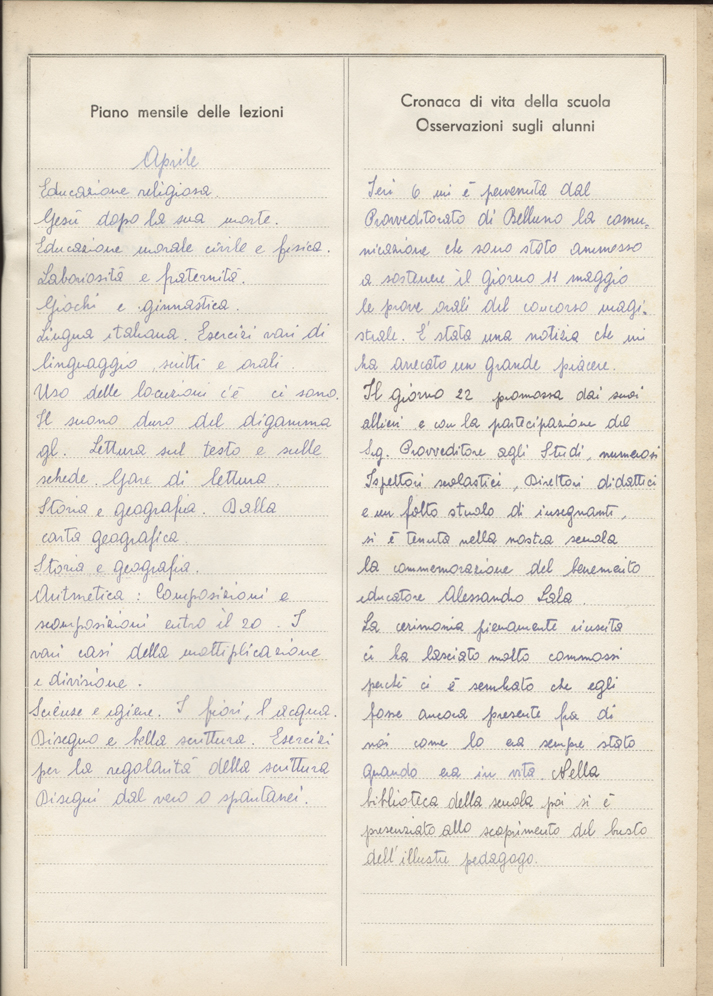 Piano mensile delle lezioni
Aprile
Educazione religiosa.
Gesù dopo la sua morte.
Educazione morale civile e fisica.
Laboriosità e fraternità.
Giochi e ginnastica.
Lingua italiana. Esercizi vari di
linguaggio, scritti e orali.
Uso delle locuzioni c'è ci sono.
Il suono duro del digamma
gl. Lettura sul testo e sulle
schede. Gare di lettura.
Storia e geografia. Dalla
carta geografica.
Storia e geografia.
Aritmetica: Composizioni e
scomposizioni entro il 20. I
vari casi della moltiplicazione
e divisione.
Scienze e igiene. I fiori, l'acqua.
Disegno e bella scrittura. Esercizi
per la regolarità della scrittura
Disegni dal vero o spontanei.
Cronaca di vita della scuola
Osservazioni sugli alunni
Ieri 6 mi è pervenuta dal
Provveditorato di Belluno la comu-
nicazione che sono stato ammesso
a sostenere il giorno 11 maggio
le prove orali del concorso magi-
strale. E' stata una notizia che mi
ha arrecato un grande piacere.
Il giorno 22 promossa dai suoi
allievi e con la partecipazione del
Sig. Provveditore agli Studi, numerosi
Ispettori scolastici, Direttori didattici
e un folto stuolo di insegnanti,
si è tenuta nella nostra scuola
la commemorazione del benemerito
educatore Alessandro Lala.
La cerimonia pienamente riuscita
ci ha lasciato molto commossi
perché ci è sembrato che egli
fosse ancora presente fra di
noi come lo era sempre stato
quando era in vita. Nella
biblioteca della scuola poi si è
presenziato allo scoprimento del busto
dell'illustre pedagogo.